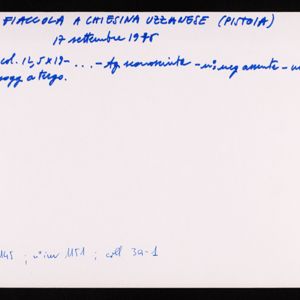 FIACCOLA A CHIESINA UZZANESE (PISTOIA)
17 settembre 1975
col. 12,5x19 - ... - Ag. sconosciuta - n° neg assente -
sogg a tergo.
145 ; n° inv 1151 ; coll 3a-1